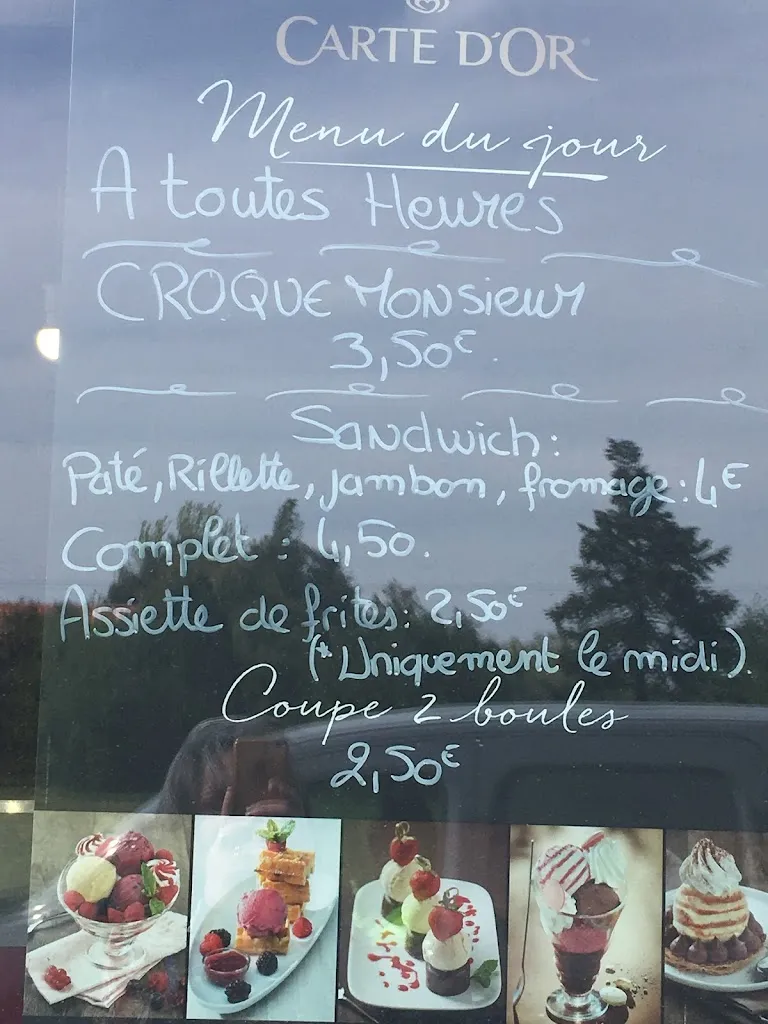 CARTE D'OR
Menu du jour
A toutes Heures
CROQUE MONSIEUR
3,50€.
Sandwich:
Paté, Rillette, jambon, fromage: 4€
Complet : 4,50.
Assiette de frites: 2,50€
(*Uniquement le midi)
Coupe 2 boules
2,50€